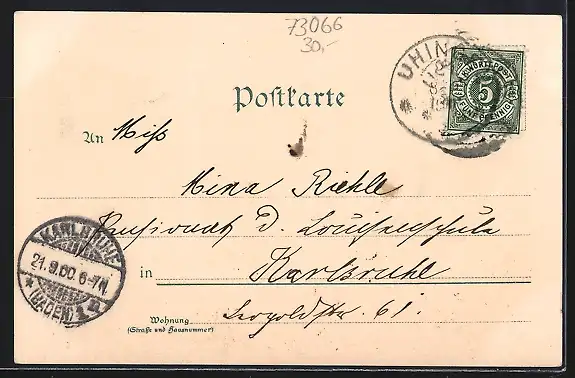 73066
30,-
UHIN
K. WÜRTT. POST
5
FÜNF PFENNIG
Postkarte
An Miss
Mina Riehle
Pensionat d. Louisenschule
in Karlsruhe
Leopoldstr. 61.
Wohnung
(Straße und Hausnummer)
KARLSRUHE
21.9.00.6-7N.
(BADEN)